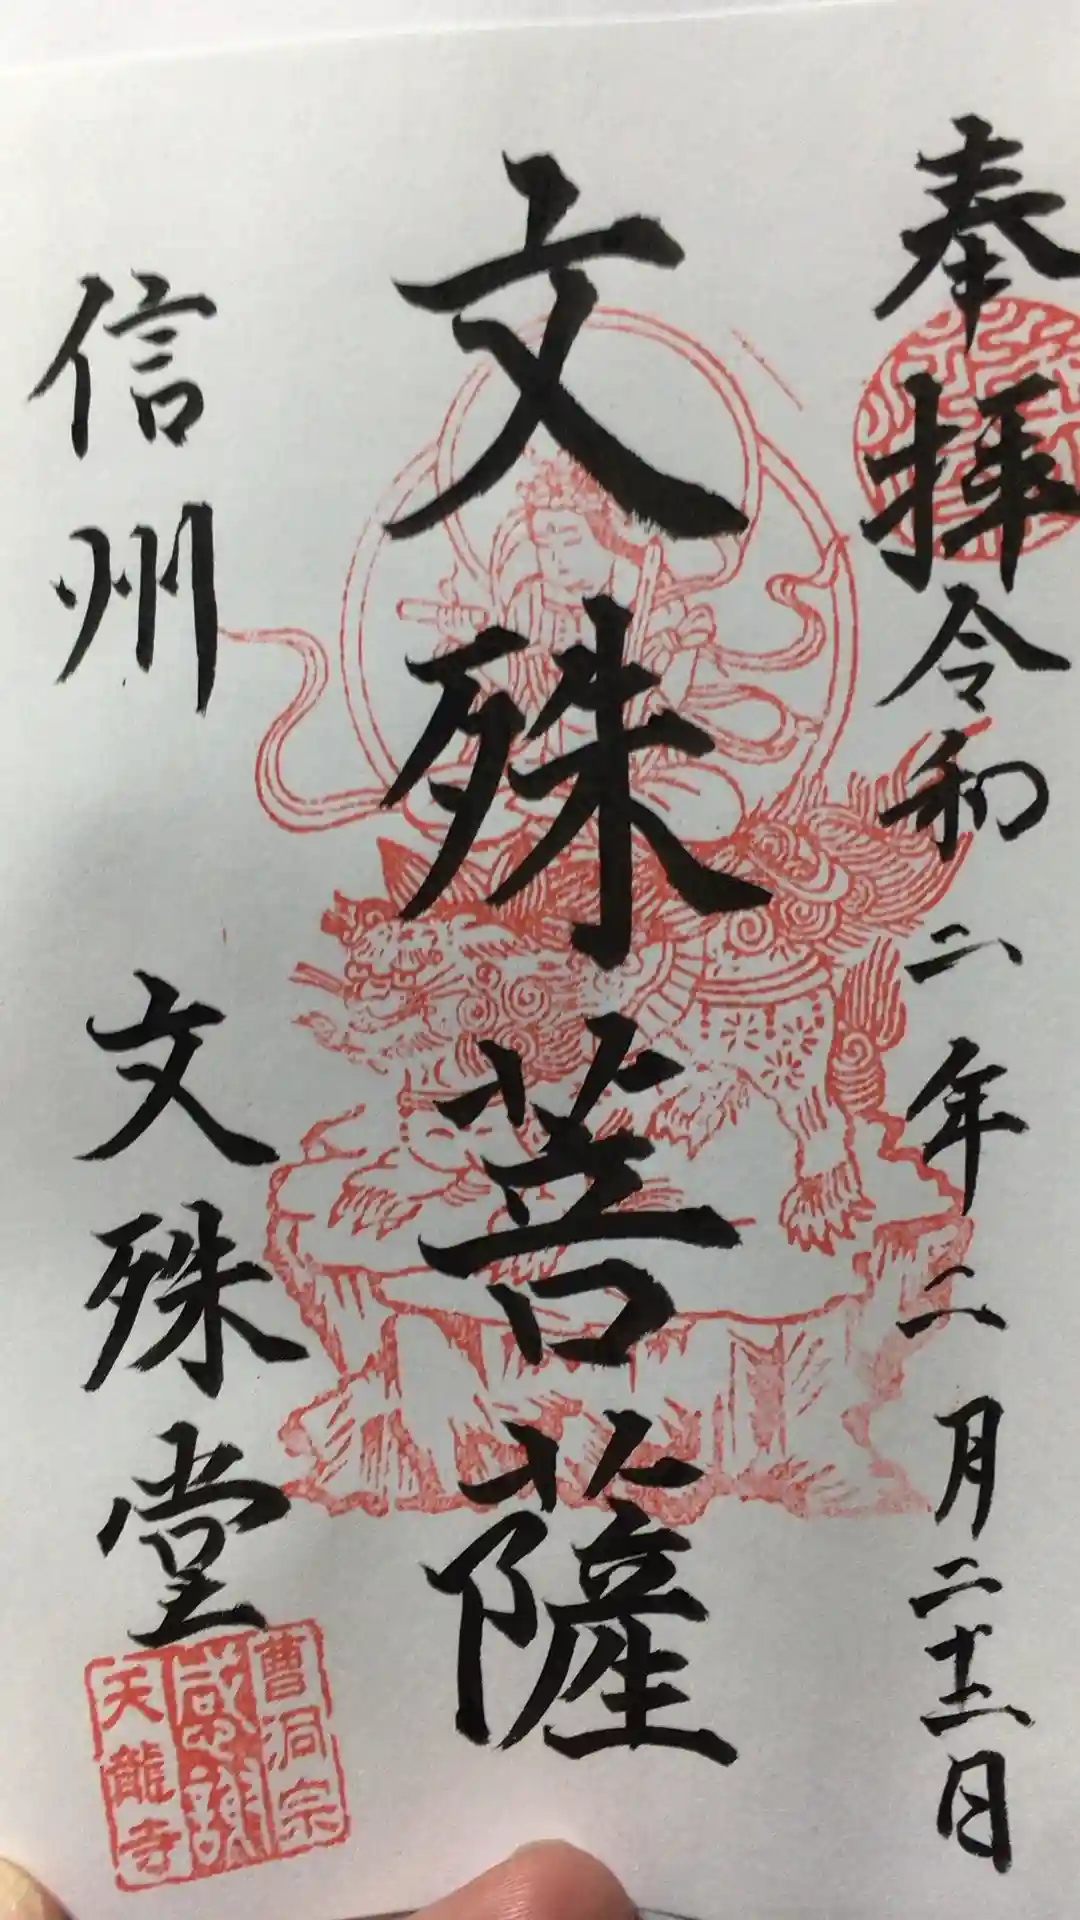 奉拝
令和二年二月二十三日
文殊菩薩
信州 文殊堂
曹洞宗
天龍寺